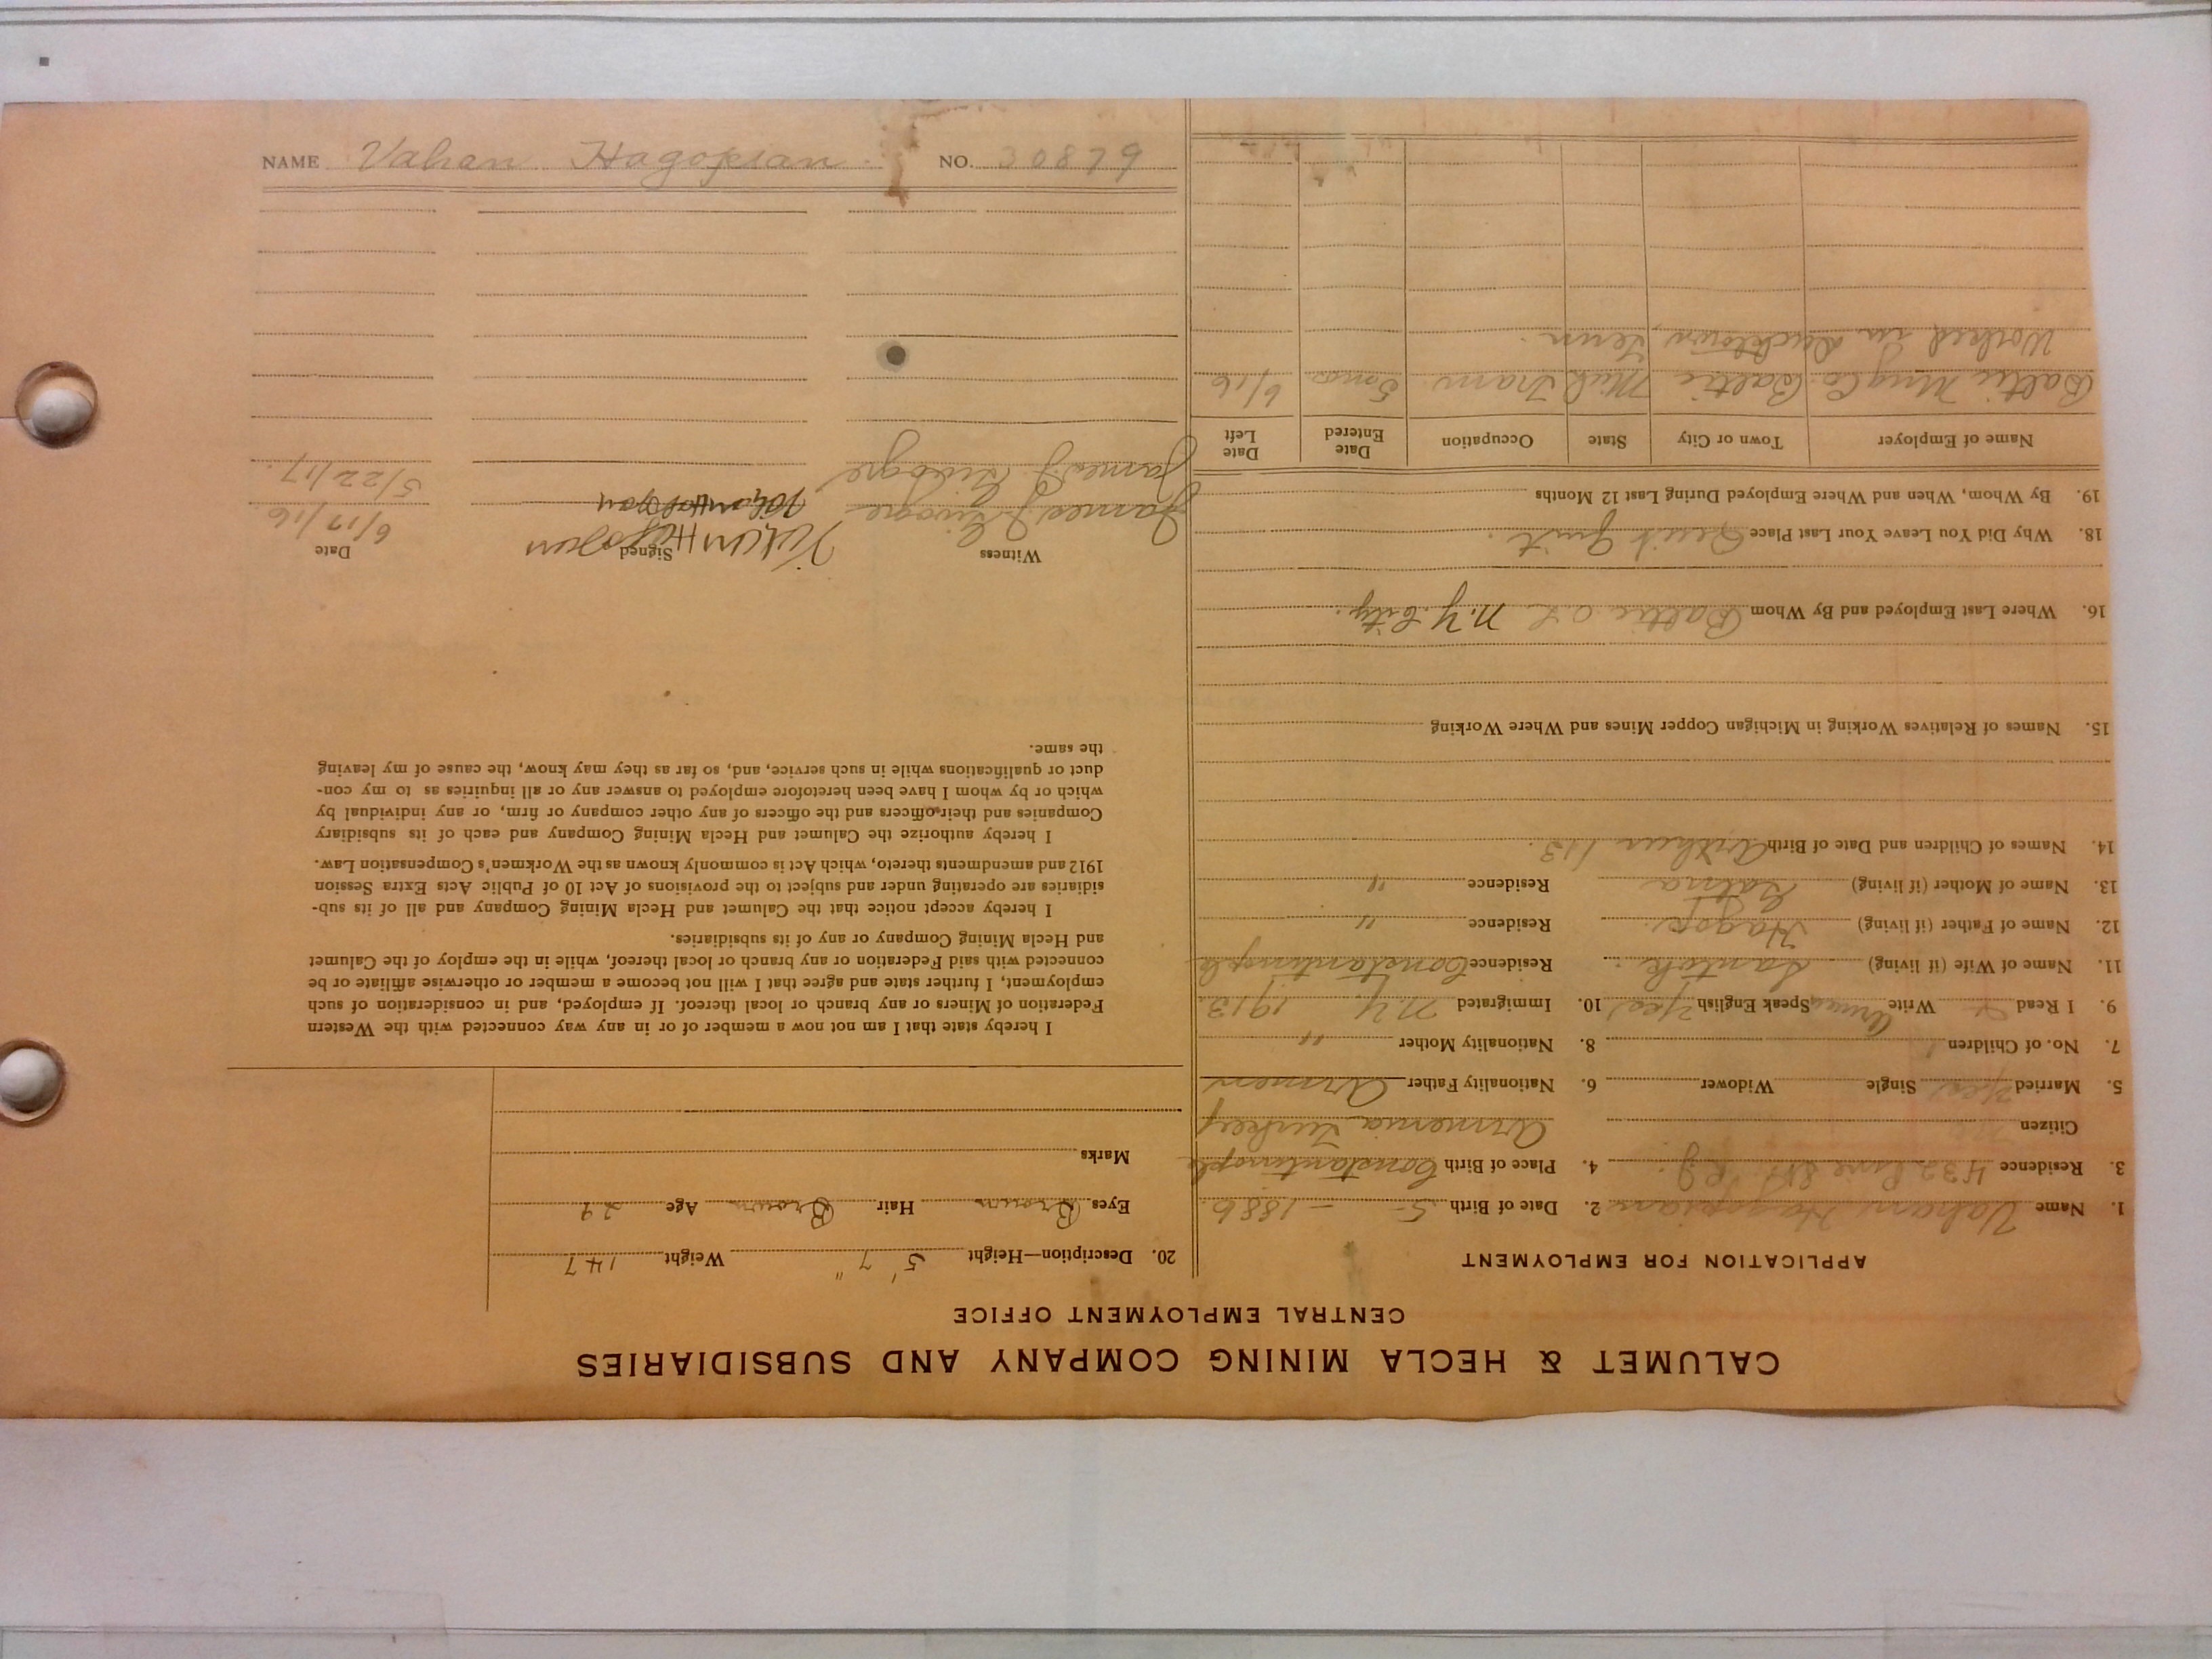 CALUMET & HECLA MINING COMPANY AND SUBSIDIARIES
CENTRAL EMPLOYMENT OFFICE
APPLICATION FOR EMPLOYMENT
1. Name Vahan Hagopian 2. Date of Birth 5 - 1886.
3. Residence 432 Pine St. 4. Place of Birth Constantinople
Citizen Armenia Turkey
5. Married Yes Single Widower 6. Nationality Father Armen
7. No. of Children 1 8. Nationality Mother "
9. I Read Write Speak English Yes 10. Immigrated N.Y. 1913.
11. Name of Wife (if living) Residence Constantinople
12. Name of Father (if living) Hagop. Residence "
13. Name of Mother (if living) Residence "
14. Names of Children and Date of Birth
15. Names of Relatives Working in Michigan Copper Mines and Where Working
16. Where Last Employed and By Whom Baltic N.Y. City.
18. Why Did You Leave Your Last Place Quit
19. By Whom, When and Where Employed During Last 12 Months
Name of Employer Town or City State Occupation Date Entered Date Left
Baltic Mng Co. Baltic Mich Tram 5 mos 6/16
Worked in Ducktown, Tenn.
20. Description—Height 5' 7" Weight 147
Eyes Brown Hair Brown Age 29
Marks
I hereby state that I am not now a member of or in any way connected with the Western
Federation of Miners or any branch or local thereof. If employed, and in consideration of such
employment, I further state and agree that I will not become a member or otherwise affiliate or be
connected with said Federation or any branch or local thereof, while in the employ of the Calumet
and Hecla Mining Company or any of its subsidiaries.
I hereby accept notice that the Calumet and Hecla Mining Company and all of its sub-
sidiaries are operating under and subject to the provisions of Act 10 of Public Acts Extra Session
1912 and amendments thereto, which Act is commonly known as the Workmen's Compensation Law.
I hereby authorize the Calumet and Hecla Mining Company and each of its subsidiary
Companies and their officers and the officers of any other company or firm, or any individual by
which or by whom I have been heretofore employed to answer any or all inquiries as to my con-
duct or qualifications while in such service, and, so far as they may know, the cause of my leaving
the same.
Witness Signed Date
James J. Vahan Hagopian 6/17/16
James J. 5/22/17.
NAME Vahan Hagopian. NO. 30879